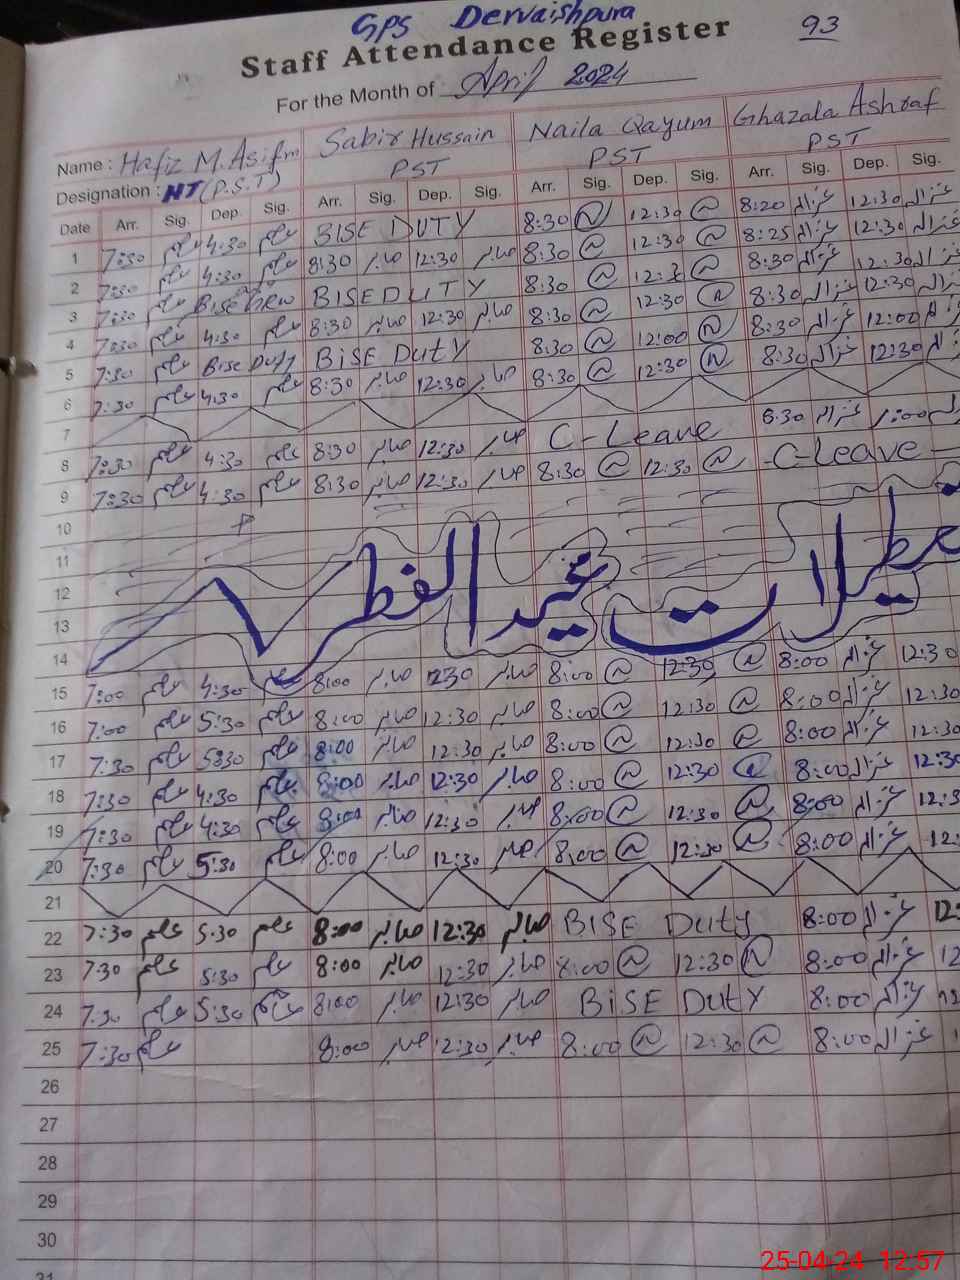 GPS Dervaishpura
93
Staff Attendance Register
For the Month of April 2024
Name : Hafiz M. Asif Sabir Hussain Naila Qayum Ghazala Ashraf
Designation : HT (P.S.T) PST PST PST
Date Arr. Sig. Dep. Sig. Arr. Sig. Dep. Sig. Arr. Sig. Dep. Sig. Arr. Sig. Dep. Sig.
1 7:30 4:30 BISE DUTY 8:30 12:30 8:20 غزالہ 12:30 غزالہ
2 7:30 4:30 8:30 صابر 12:30 صابر 8:30 12:30 8:25 غزالہ 12:30 غزالہ
3 7:30 Bise BISE DUTY 8:30 12:30 8:30 غزالہ 12:30 غزالہ
4 7:30 4:30 8:30 صابر 12:30 صابر 8:30 12:30 8:30 غزالہ 12:30
5 7:30 Bise Duty BISE DUTY 8:30 12:00 8:30 غزالہ 12:00
6 7:30 4:30 8:30 صابر 12:30 صابر 8:30 12:30 8:30 غزالہ 12:30
7
8 7:30 4:30 8:30 صابر 12:30 صابر C-Leave غزالہ 1:00
9 7:30 4:30 8:30 صابر 12:30 صابر 8:30 12:30 C-Leave
10
11
12
13
تعطیلات عید الفطر
14
15 7:00 4:30 8:00 صابر 12:30 صابر 8:00 12:30 8:00 غزالہ 12:30
16 7:00 5:30 8:00 صابر 12:30 صابر 8:00 12:30 8:00 غزالہ 12:30
17 7:30 5:30 8:00 صابر 12:30 صابر 8:00 12:30 8:00 غزالہ 12:30
18 7:30 4:30 8:00 صابر 12:30 صابر 8:00 12:30 8:00 غزالہ 12:30
19 7:30 4:30 8:00 صابر 12:30 صابر 8:00 12:30 8:00 غزالہ 12:3
20 7:30 5:30 8:00 صابر 12:30 صابر 8:00 12:30 8:00 غزالہ 12:
21
22 7:30 5:30 8:00 صابر 12:30 صابر BISE Duty 8:00 غزالہ 12:
23 7:30 5:30 8:00 صابر 12:30 صابر 8:00 12:30 8:00 غزالہ 12
24 7:30 5:30 8:00 صابر 12:30 صابر BISE DUTY 8:00 غزالہ 12
25 7:30 8:00 صابر 12:30 صابر 8:00 12:30 8:00 غزالہ
26
27
28
29
30
31
25-04-24 12:57